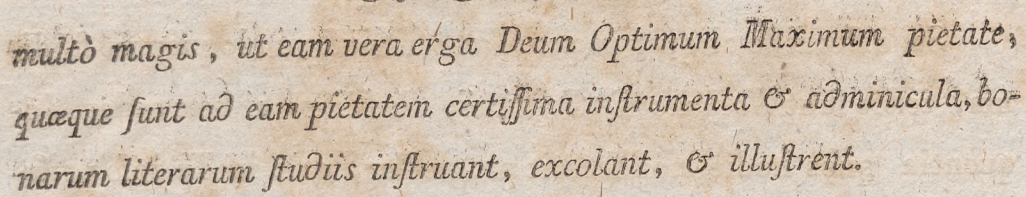 multò magis, ut eam vera erga Deum Optimum Maximum pietate,
quæque ſunt ad eam pietatem certiſſima inſtrumenta & adminicula, bo-
narum literarum ſtudiis inſtruant, excolant, & illuſtrent.